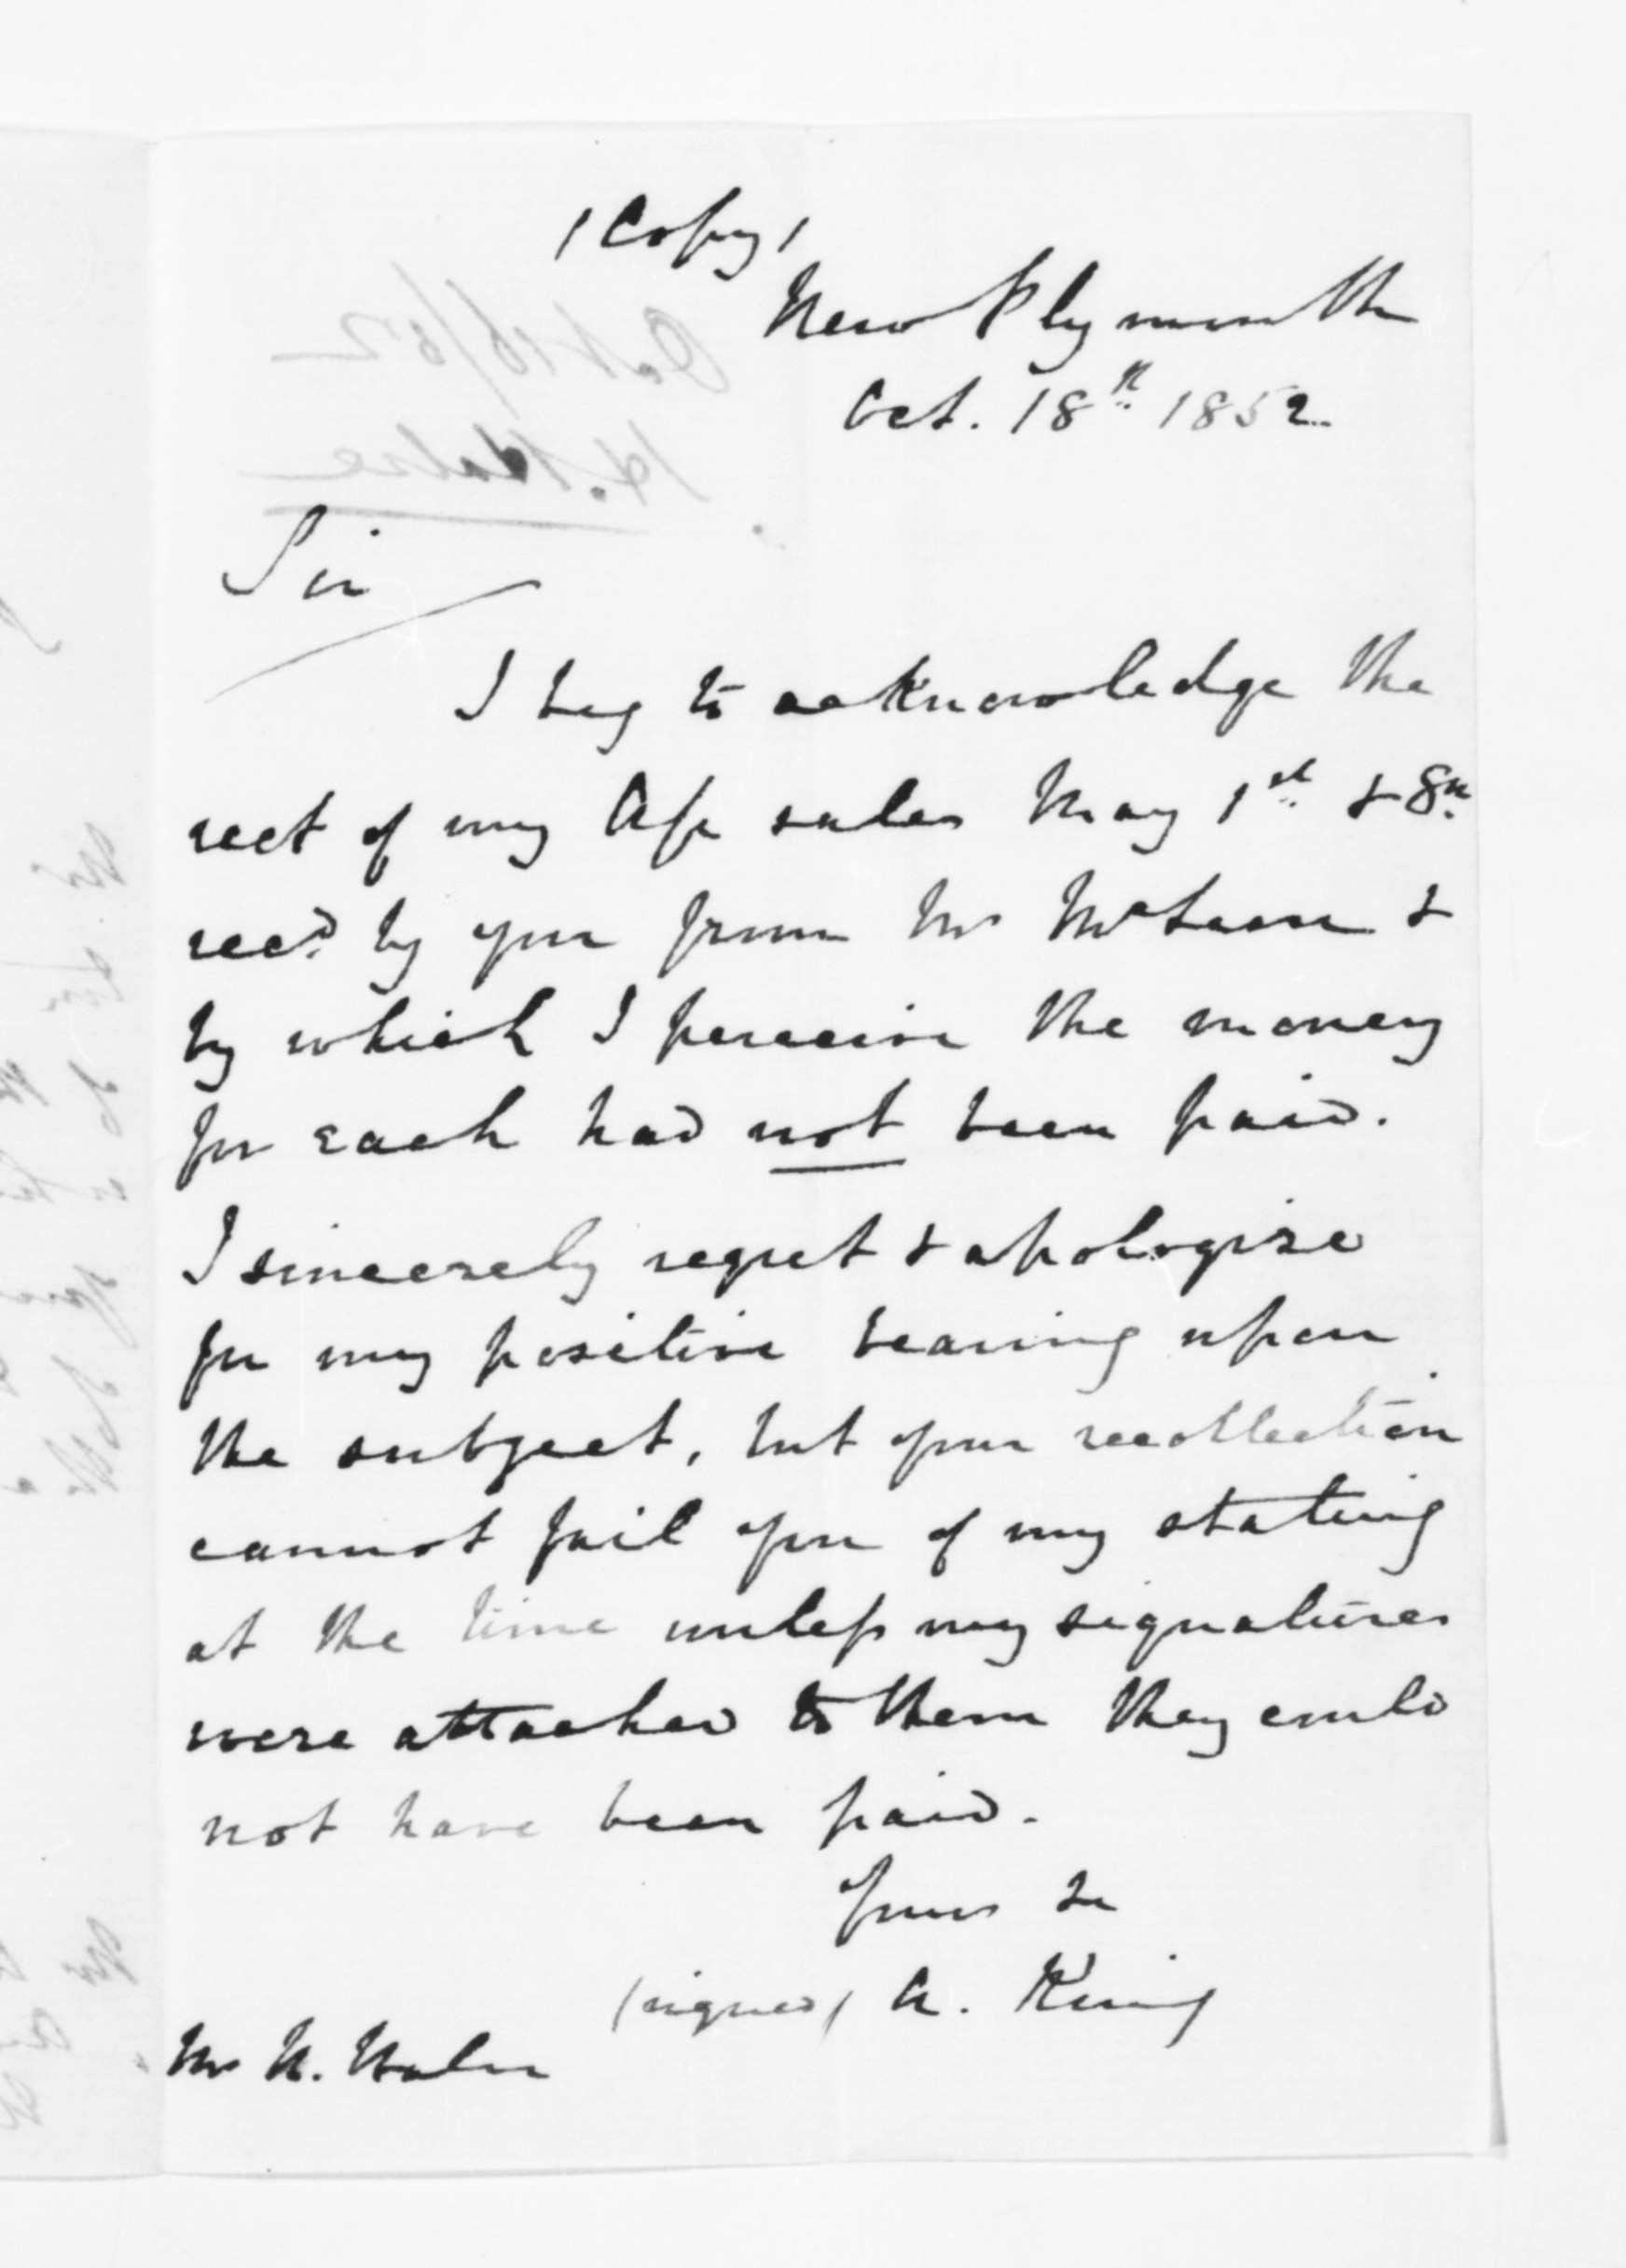 (Copy)
New Plymouth
Oct. 18th 1852.
Sir
I beg to acknowledge the
rect of my A/c sales May 1st & 8th
recd by you from Mr McLean &
by which I perceive the money
for each had not been paid.
I sincerely regret & apologise
for my positive bearing upon
the subject, but your recollection
cannot fail you of my stating
at the time unless my signatures
were attached to them they could
not have been paid.
Yours &c
(signed) A. King
Mr H. Halse
Oct 18/52
H. Halse